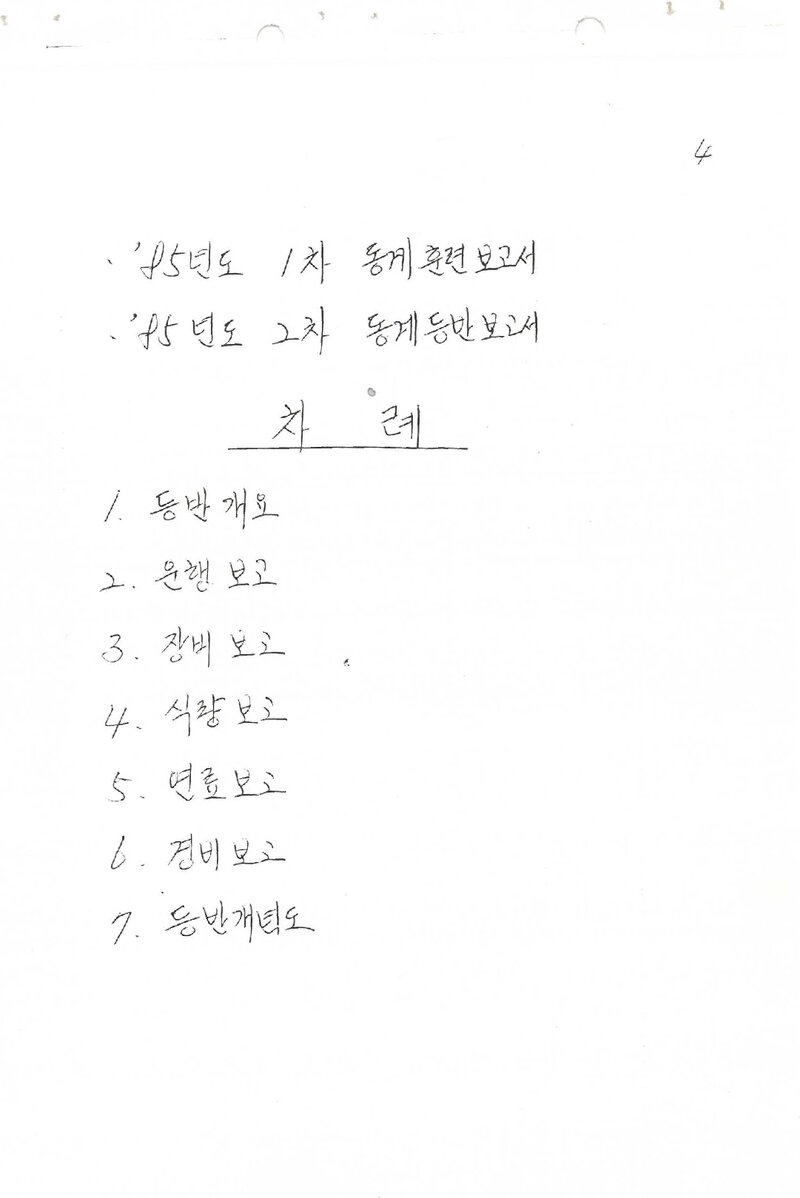 4
· '85년도 1차 동계훈련보고서
· '85년도 2차 동계등반보고서
차 례
1. 등반개요
2. 운행 보고
3. 장비 보고
4. 식량 보고
5. 연료 보고
6. 경비 보고
7. 등반개념도